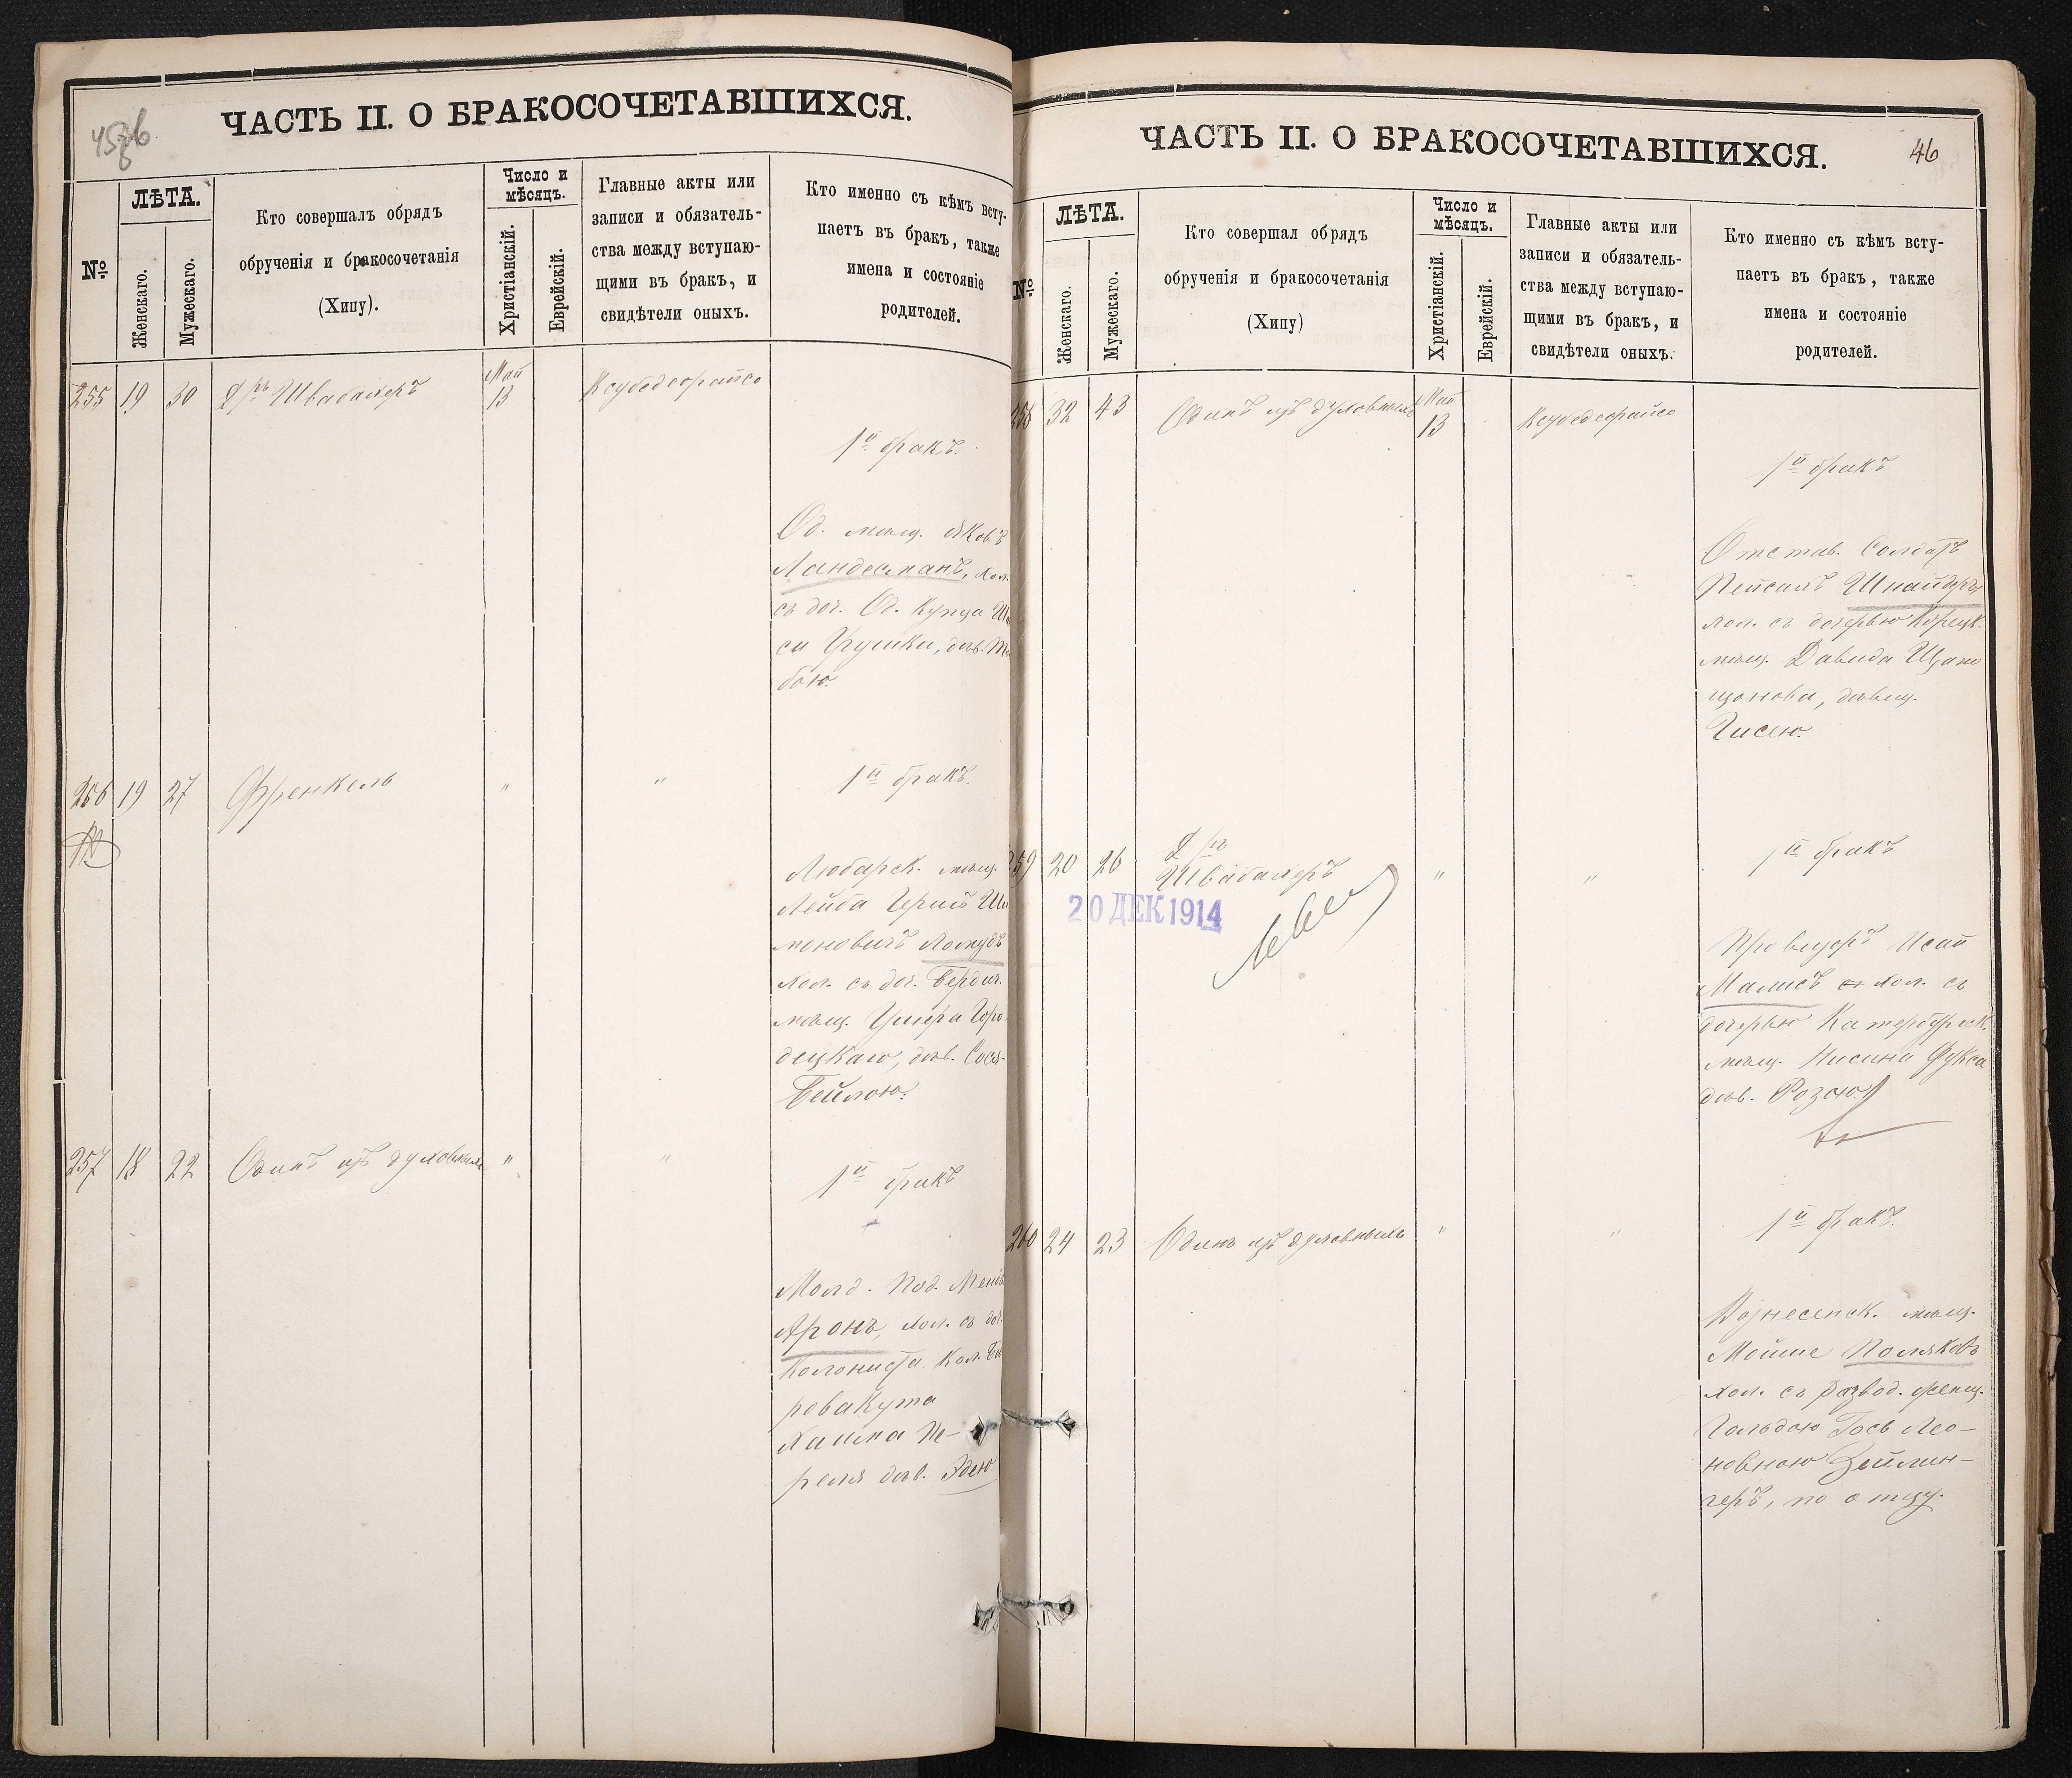 ЧАСТЬ II. О БРАКОСОЧЕТАВШИХСЯ.
№
ЛѢТА.
Женскаго.
Мужескаго.
Кто совершалъ обрядъ
обрученія и бракосочетанія
(Хипу).
Число и
мѣсяцъ.
Христіанскій.
Еврейскій.
Главные акты или
записи и обязатель-
ства между вступаю-
щими въ бракъ, и
свидѣтели оныхъ.
Кто именно съ кѣмъ всту-
паетъ въ бракъ, также
имена и состояніе
родителей.
255 19 30 Д/ръ Швабахеръ Май 13 Ксубедеорайсо
1й бракъ.
Од. мѣщ. Яковъ
Ландесманъ, хол.
съ доч. Од. купца
бою.
256 19 27 Френкель " "
1й бракъ.
Любарск. мѣщ.
Лейба Гершъ
моновичъ
хол. съ доч. Бердич.
мѣщ. Умера Горо-
децкаго, дѣв. Сося-
Бейлою.
257 18 22 Одинъ изъ духовныхъ " "
1й бракъ
Молд. под.
Аронъ, хол. съ доч.
Колониста Кол.
ровакута
Хаима Пе-
реля дѣв. Эдею.
ЧАСТЬ II. О БРАКОСОЧЕТАВШИХСЯ.
46
№
ЛѢТА.
Женскаго.
Мужескаго.
Кто совершал обрядъ
обрученія и бракосочетанія
(Хипу)
Число и
мѣсяцъ.
Христіанскій.
Еврейскій.
Главные акты или
записи и обязатель-
ства между вступаю-
щими въ бракъ, и
свидѣтели оныхъ.
Кто именно съ кѣмъ всту-
паетъ въ бракъ, также
имена и состояніе
родителей.
32 43 Одинъ изъ духовныхъ Май 13 Ксубедеорайсо
1й бракъ
Отстав. Солдатъ
Пейсахъ Шнайдеръ
хол. съ дочерью Корецк.
мѣщ. Давида
цонова, дѣвиц.
Гисею.
59 20 26 Д/ръ
Швабахеръ " "
1й бракъ
20 ДЕК 1914
Провизоръ Исай
Малисъ хол. съ
дочерью Катербургск.
мѣщ. Нисина Фукса
дѣв. Розою.
260 24 23 Одинъ изъ духовныхъ " "
1й бракъ.
Вознесенск. мѣщ.
Мойше Поляковъ
хол. съ развод. женщ.
Гольдою Гось Лео-
новною Зейлин-
геръ, по отцу.